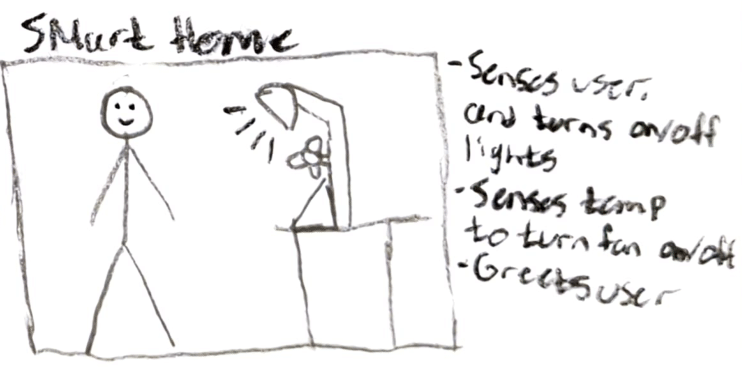 SMart Home
- Senses user,
and turns on/off
lights
- Senses temp
to turn fan on/off
- Greets user